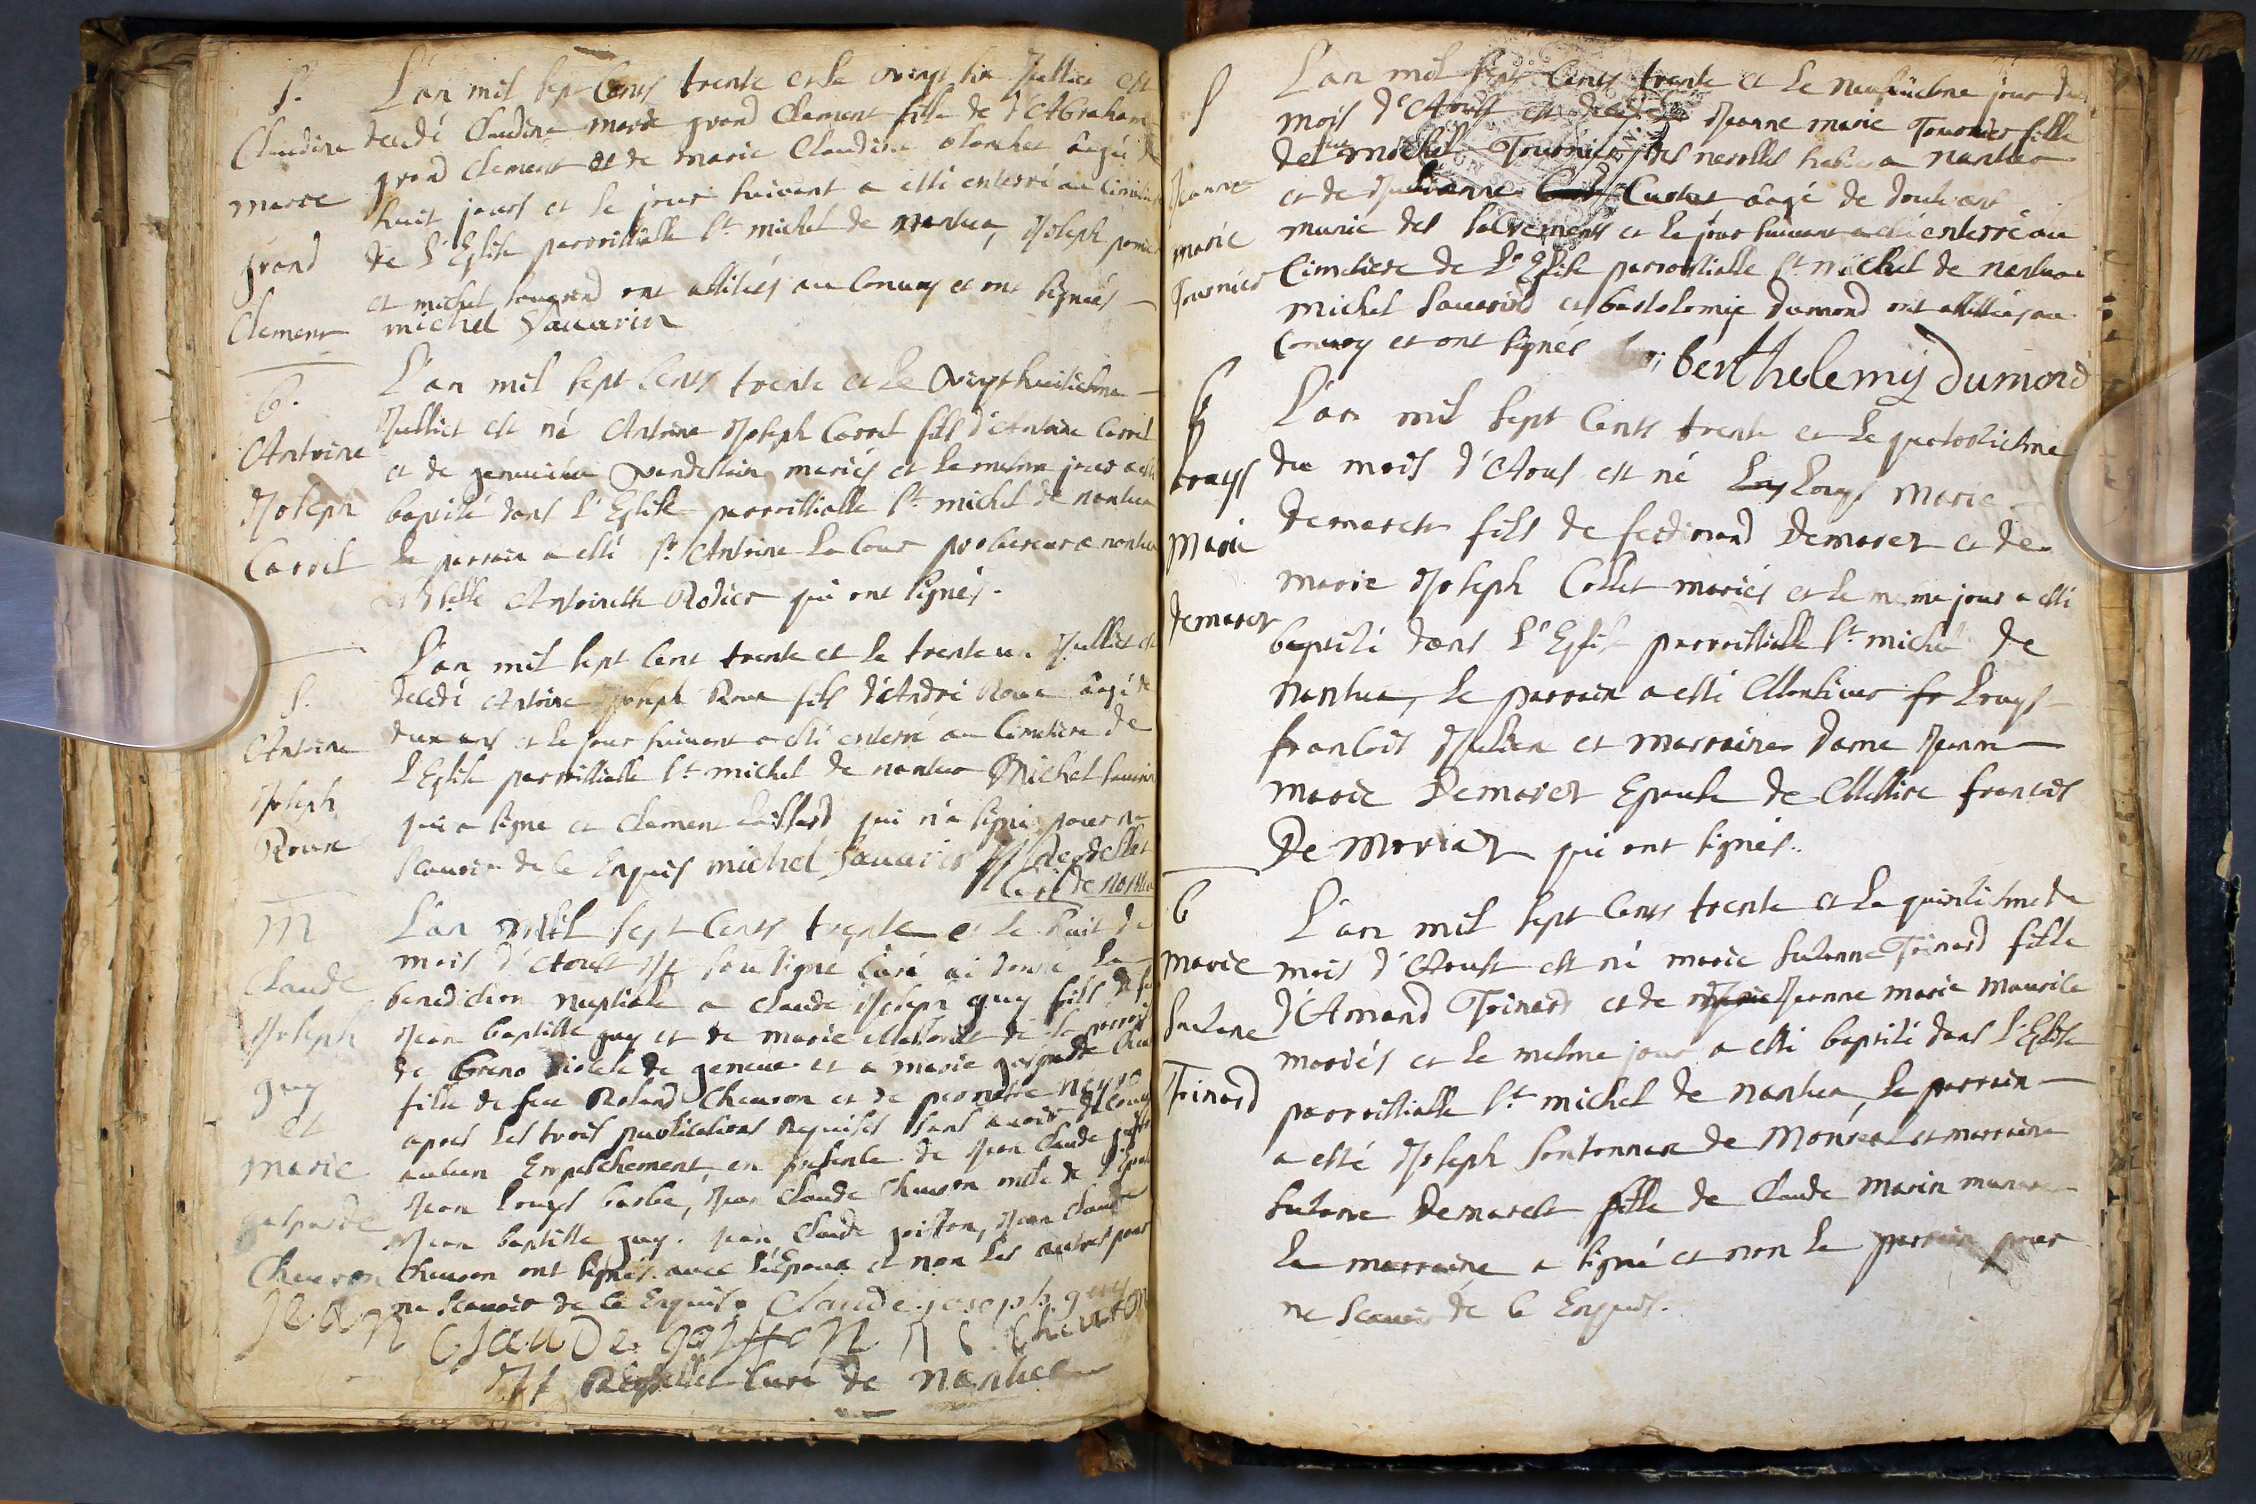 S.
Claudine
marie
grand
Clement
L'an mil sept Cents trente et le vingt six Juillet est
decedé Claudine marie grand Clement fille de d'Abraham
grand Clement et de marie Claudine blanchet âgée de
huit jours et le jour suivant a esté enterré au Cimetiere
de l'Eglise parroissialle St michel de nantua, Joseph
et michel sauvrod ont assistés au Convoy et ont signés
michel Sauvarin
B.
Antoine
Joseph
Carrel
L'an mil sept Cents trente et le vingt huitiesme
Juillet est né Antoine Joseph Carrel fils d'Antoine Carrel
et de genevieve mariés et le mesme jour a esté
baptisé dans l'Eglise parroissialle St michel de nantua
le parrain a esté Sr Antoine La Cour procureur a nantua
et Antoinette Rodier qui ont signés.
S.
Antoine
Joseph
Roux
L'an mil sept Cent trente et le trente un Juillet est
decedé Antoine Joseph Roux fils d'André Roux âgé de
deux ans et le jour suivant a esté enterré au Cimetiere de
l'Eglise parroissialle St michel de nantua Michel
qui a signé et Clement qui n'a signé pour ne
scavoir de ce Enquis michel Sauvarin
Curé de nantua
M
Claude
Joseph
guy
et
marie
gasparde
Cheuron
L'an mil sept Cents trente et le huit de
mois d'Aoust Jay soussigné Curé ai donné la
benediction nuptiale a Claude Joseph guy fils de
Jean baptiste guy et de marie de la
de Breno Diocese de geneve et a marie gasparde
fille de feu Roland Cheuron et de pernette
apres les trois publications Requises sans avoir
aucun Empeschement, en presence de Jean Claude
Jean Louys barbe, Jean Claude Cheuron de
Jean baptiste guy. Jean Claude goiffon, Jean Claude
Cheuron ont signés avec l'Epoux et non les autres pour
ne scavoir de ce Enquis Claude joseph guy
Jean Claude goiffon J C Cheuron
Curé de nantua
S
Jeanne
marie
Tournier
L'an mil sept Cents trente et le neufuiesme jour du
mois d'Aoust est decedée Jeanne marie Tournier fille
de michel Tournier des nerolles a nantua
et de Custot âgé de
munie des sacrements et le jour suivant a esté enterré au
Cimetiere de l'Eglise parroissialle St michel de nantua
michel et bartelemie Dumond ont assistés au
Convoy et ont signés berthelemy Dumond
B
Louys
Marie
demarez
L'an mil sept Cents trente et le quatorziesme
du mois d'Aous est né Louys Marie
demarest fils de ferdinand Demarez et de
marie Joseph Collet mariés et le meme jour a esté
baptisé dans l'Eglise parroissialle St michel de
nantua, le parrain a esté Monsieur fr Louys
francois Julien et marraine dame Jeanne
marie Demarez Epouse de Messire francois
De Moriaz qui ont signés.
B
marie
Suzane
Trinard
L'an mil sept Cents trente et le quinziesme de
mois d'Aoust est né marie Suzanne Trinard fille
d'Amand Trinard et de Jeanne marie maurice
mariés et le mesme jour a esté baptisé dans l'Eglise
parroissialle St michel de nantua, le parrain
a esté Joseph Sontonnax de Monreal et marraine
Suzanne Demarest fille de Claude Marin
la marraine a signé et non le parrain pour
ne scavoir de ce Enquis.